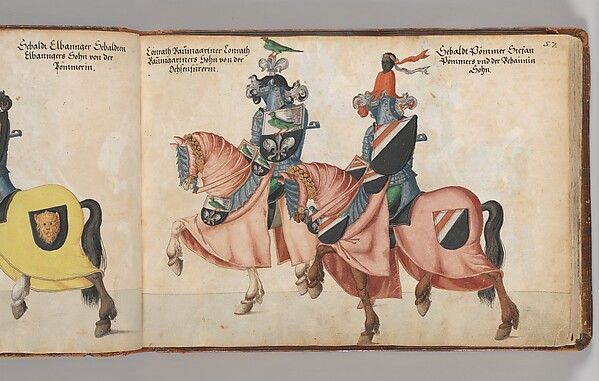 Sebaldt Elbannger Sebaldten
Elbanngers Sohn von der
Pömmerin.
Conrath Paumgartner Conrath
Paumgartners Sohn von der
Sebaldt Pömmer Stefan
Pömmers vnd der Schaunin
Sohn
57.